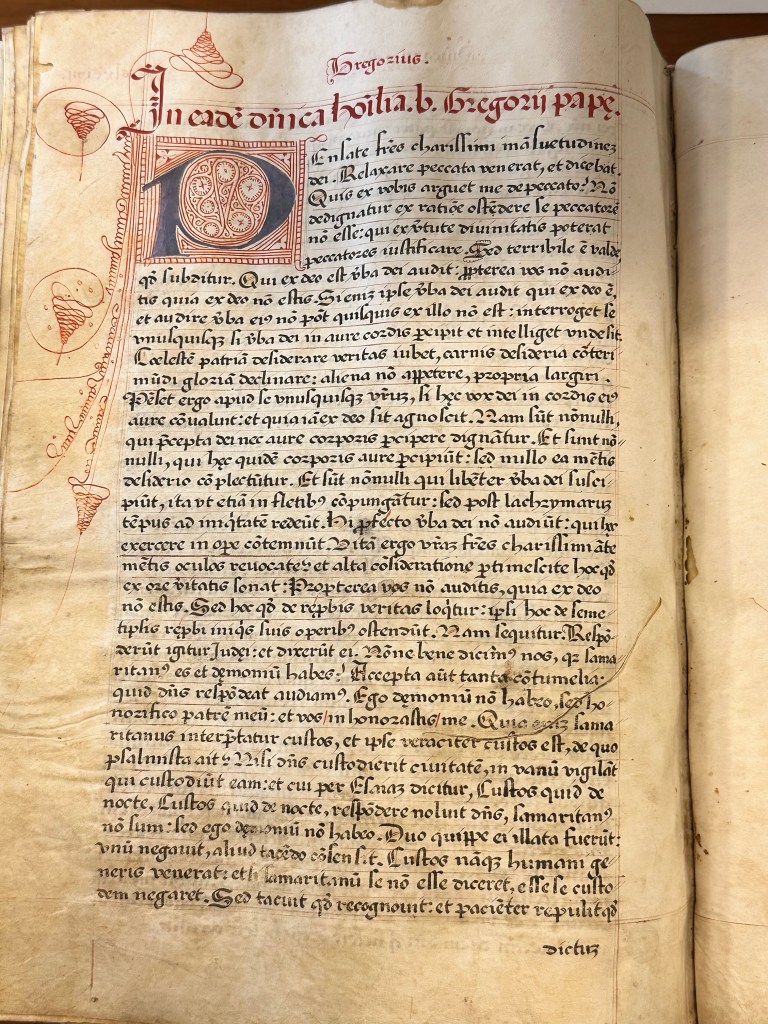 Gregorius.
In eadē dn̄ica hoīlia. b. Gregorij papę.
PEnsate frēs charissimi māsuetudinez
dei. Relaxare peccata venerat, et dicebat.
Quis ex vobis arguet me de peccato? Nō
dedignatur ex ratiōe ostēdere se peccatorē
nō esse: qui ex v̄tute diuinitatis poterat
peccatores iustificare. Sed terribile ē valde
qd̄ subditur. Qui ex deo est v̄ba dei audit: ꝓpterea vos nō audi-
tis quia ex deo nō estis. Si eniz ipse v̄ba dei audit qui ex deo ē,
et audire v̄ba eiꝰ nō pōt quisquis ex illo nō est: interroget se
vnusquisqꝫ si v̄ba dei in aure cordis ꝑcipit et intelliget vnde sit.
Cœlestē patriā desiderare veritas iubet, carnis desideria cōteri
mūdi gloriā declinare: aliena nō appetere, propria largiri.
Pēset ergo apud se vnusquisqꝫ vr̄uz, si hęc vox dei in cordis eiꝰ
aure cōualunt: et quia iā ex deo sit agnoscit. Nam sūt nōnulli,
qui p̄cepta dei nec aure corporis ꝑcipere dignātur. Et sunt nō-
nulli, qui hęc quidē corporis aure ꝑcipiūt: sed nullo ea mētis
desiderio cōplectūtur. Et sūt nōnulli qui libēter v̄ba dei susci-
piūt, ita vt etiā in fletibꝰ cōpungātur: sed post lachrymaruz
tēpus ad iniqͥtatē redeūt. Hi ꝓfecto v̄ba dei nō audiūt: qui hęc
exercere in oꝑe cōtemnūt. Vitā ergo vr̄az frēs charissimi āte
mētis oculos reuocate: et alta cōsideratione ꝑtimescite hoc qd̄
ex ore v̄itatis sonat: Propterea vos nō auditis, quia ex deo
nō estis. Sed hoc qd̄ de rep̄bis veritas loqͥtur: ipsi hoc de seme-
tipsis rep̄bi iniqͥs suis operibꝰ ostendūt. Nam sequitur. Respō-
derūt igitur Judęi: et dixerūt ei. Nōne bene dicimꝰ nos, qꝛ sama-
ritanꝰ es et dęmoniū habes? Accepta aūt tanta cōtumelia:
quid dn̄s respōdeat audiamꝰ. Ego dęmoniū nō habeo, sed ho-
norifico patrē meū: et vos inhonorastis me. Quia eniz sama-
ritanus interp̄tatur custos, et ipse veraciter custos est, de quo
psalmista ait: Nisi dn̄s custodierit ciuitatē, in vanū vigilāt
qui custodiūt eam: et cui per Esaiaz dicitur, Custos quid de
nocte, Custos quid de nocte, respōdere noluit dn̄s, samaritanꝰ
nō sum: sed ego dęmoniū nō habeo. Duo quippe ei illata fuerūt:
vnū negauit, aliud tacēdo cōsensit. Custos nāqꝫ humani ge-
neris venerat: et si samaritanū se nō esse diceret, esse se custo-
dem negaret. Sed tacuit qd̄ recognouit: et paciēter repulit qd̄
dictuz